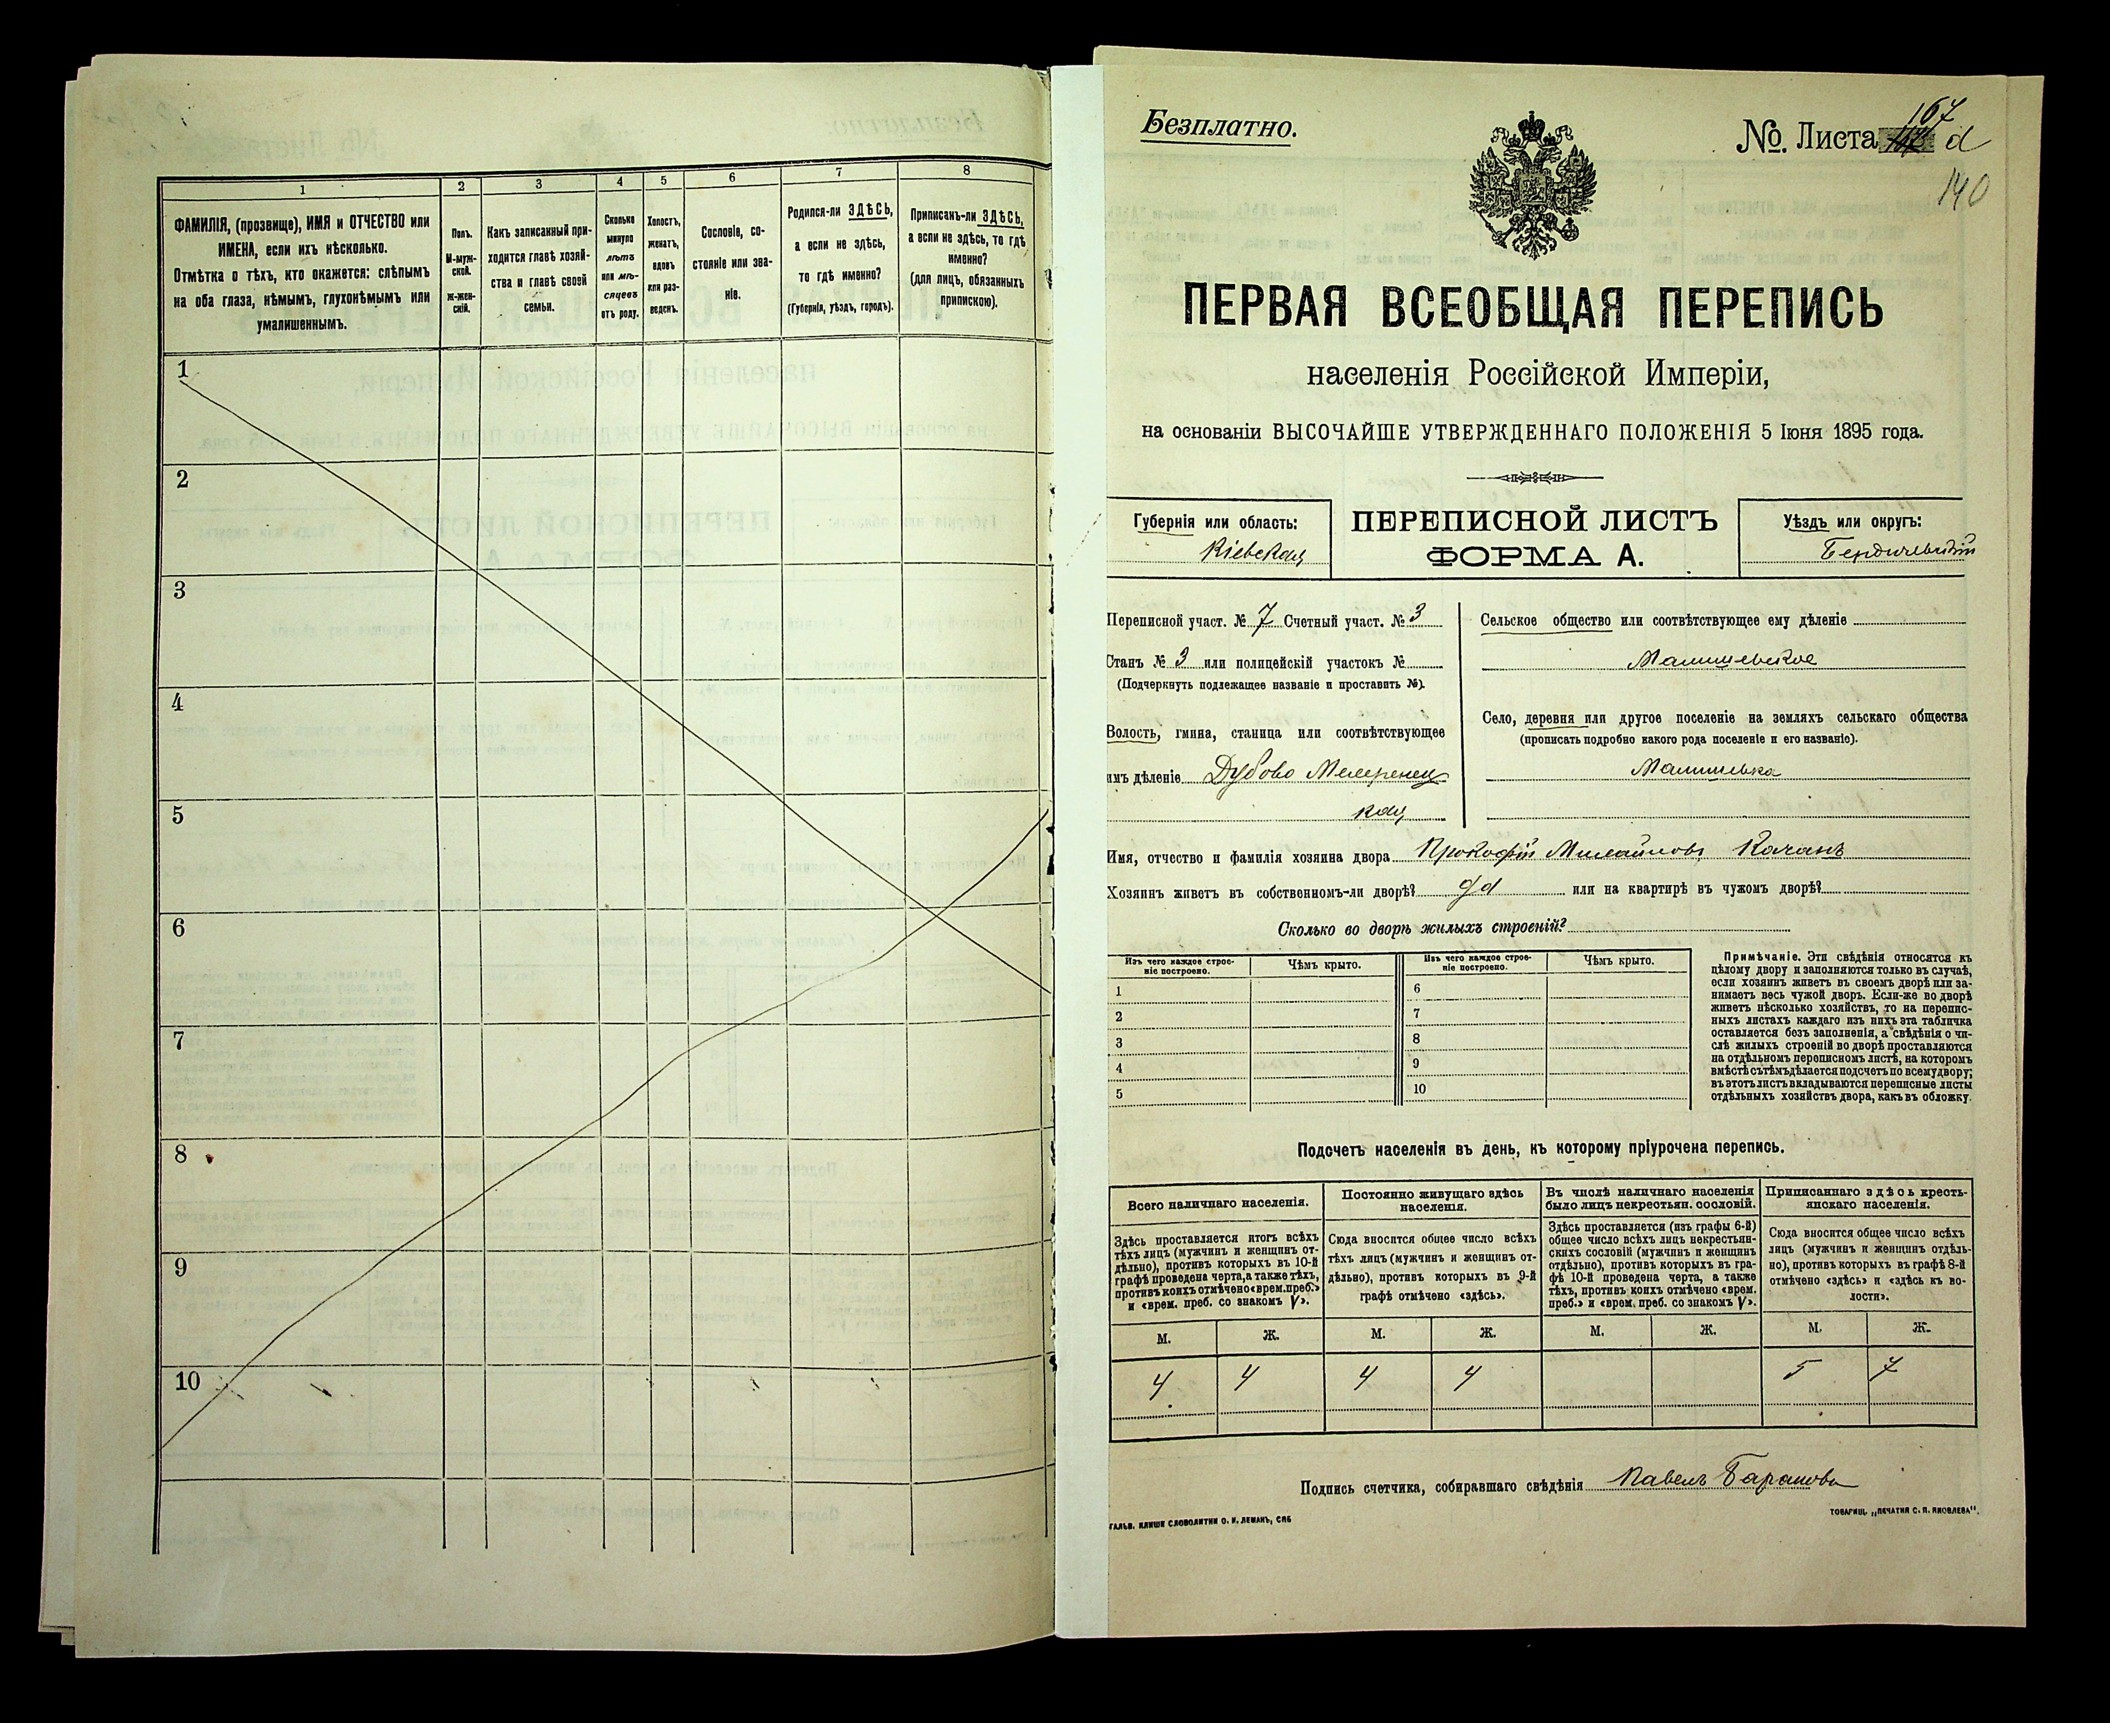 1
2
3
4
5
6
7
8
ФАМИЛІЯ, (прозвище), ИМЯ и ОТЧЕСТВО или
ИМЕНА, если ихъ нѣсколько.
Отмѣтка о тѣхъ, кто окажется: слѣпымъ
на оба глаза, нѣмымъ, глухонѣмымъ или
умалишеннымъ.
Полъ.
М-муж-
ской.
ж-жен-
скій.
Какъ записанный при-
ходится главѣ хозяй-
ства и главѣ своей
семьи.
Сколько
минуло
лѣтъ
или мѣ-
сяцевъ
отъ роду.
Холостъ,
женатъ,
вдовъ
или раз-
веденъ.
Сословіе, со-
стояніе или зва-
ніе.
Родился-ли ЗДѢСЬ,
а если не здѣсь,
то гдѣ именно?
(Губернія, уѣздъ, городъ).
Приписанъ-ли ЗДѢСЬ,
а если не здѣсь, то гдѣ
именно?
(для лицъ, обязанныхъ
припискою).
1
2
3
4
5
6
7
8
9
10
Безплатно.
№. Листа 167 d
140
ПЕРВАЯ ВСЕОБЩАЯ ПЕРЕПИСЬ
населенія Россійской Имперіи,
на основаніи ВЫСОЧАЙШЕ УТВЕРЖДЕННАГО ПОЛОЖЕНІЯ 5 Іюня 1895 года.
Губернія или область:
Кіевская
ПЕРЕПИСНОЙ ЛИСТЪ
ФОРМА А.
Уѣздъ или округъ:
Бердичевскій
Переписной участ. № 7 Счетный участ. № 3
Станъ № 3 или полицейскій участокъ №
(Подчеркнуть подлежащее названіе и проставить №).
Волость, гмина, станица или соотвѣтствующее
имъ дѣленіе Дубово Мехеренец
кая
Сельское общество или соотвѣтствующее ему дѣленіе
Малишевское
Село, деревня или другое поселеніе на земляхъ сельскаго общества
(прописать подробно какого рода поселеніе и его названіе).
Малишевка
Имя, отчество и фамилія хозяина двора Прокофій Михайловъ Качанъ
Хозяинъ живетъ въ собственномъ-ли дворѣ? или на квартирѣ въ чужомъ дворѣ?
Сколько во дворѣ жилыхъ строеній?
Изъ чего каждое строе-
ніе построено.
Чѣмъ крыто.
Изъ чего каждое строе-
ніе построено.
Чѣмъ крыто.
1
2
3
4
5
6
7
8
9
10
Примѣчаніе. Эти свѣдѣнія относятся къ
цѣлому двору и заполняются только въ случаѣ,
если хозяинъ живетъ въ своемъ дворѣ или за-
нимаетъ весь чужой дворъ. Если-же во дворѣ
живетъ нѣсколько хозяйствъ, то на перепис-
ныхъ листахъ каждаго изъ нихъ эта табличка
оставляется безъ заполненія, а свѣдѣнія о чи-
слѣ жилыхъ строеній во дворѣ проставляются
на отдѣльномъ переписномъ листѣ, на которомъ
вмѣстѣ съ тѣмъ дѣлается подсчетъ по всему двору;
въ этотъ листъ вкладываются переписные листы
отдѣльныхъ хозяйствъ двора, какъ въ обложку.
Подсчетъ населенія въ день, къ которому пріурочена перепись.
Всего наличнаго населенія.
Постоянно живущаго здѣсь
населенія.
Въ числѣ наличнаго населенія
было лицъ некрестьян. сословій.
Приписаннаго здѣсь кресть-
янскаго населенія.
Здѣсь проставляется итогъ всѣхъ
тѣхъ лицъ (мужчинъ и женщинъ от-
дѣльно), противъ которыхъ въ 10-й
графѣ проведена черта, а также тѣхъ,
противъ коихъ отмѣчено «врем. преб.»
и «врем. преб. со знакомъ V».
Сюда вносится общее число всѣхъ
тѣхъ лицъ (мужчинъ и женщинъ от-
дѣльно), противъ которыхъ въ 9-й
графѣ отмѣчено «здѣсь».
Здѣсь проставляется (изъ графы 6-й)
общее число всѣхъ лицъ некрестьян-
скихъ сословій (мужчинъ и женщинъ
отдѣльно), противъ которыхъ въ гра-
фѣ 10-й проведена черта, а также
тѣхъ, противъ коихъ отмѣчено «врем.
преб.» и «врем. преб. со знакомъ V».
Сюда вносится общее число всѣхъ
лицъ (мужчинъ и женщинъ отдѣль-
но), противъ которыхъ въ графѣ 8-й
отмѣчено «здѣсь» и «здѣсь къ во-
лости».
М. Ж. М. Ж. М. Ж. М. Ж.
4 4 4 4 5 7
Подпись счетчика, собиравшаго свѣдѣнія Павелъ Барановъ
ГАЛЬВ. КЛИШЕ СЛОВОЛИТНИ О. И. ЛЕМАНЪ, СПБ
ТОВАРИЩ. „ПЕЧАТНЯ С. П. ЯКОВЛЕВА“.